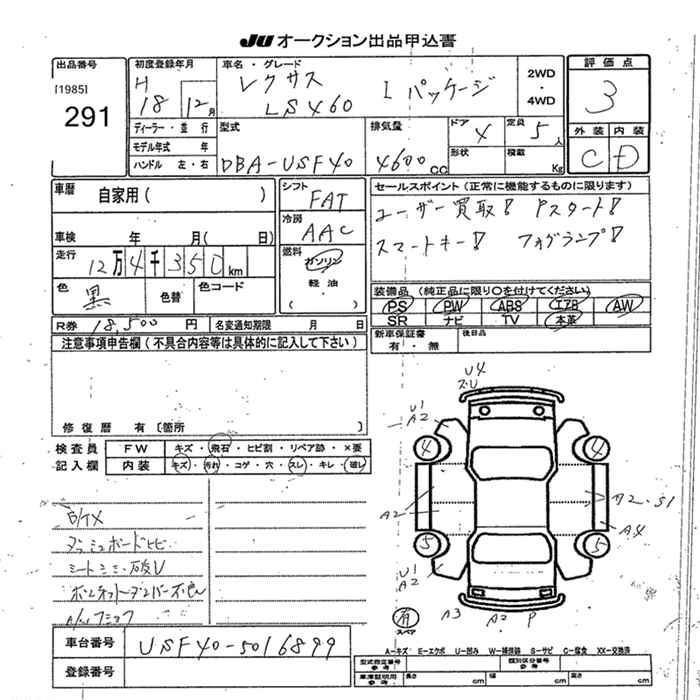 JU オークション出品申込書
出品番号
[1985]
291
初度登録年月
H 18 12月
車名・グレード
レクサス
LS460 I パッケージ
2WD
・
4WD
評価点
3
外装 内装
C D
ディーラー・並行
モデル年式 年
ハンドル 左・右
型式
DBA-USF40
排気量
4600CC
ドア 4
形状
定員 5人
積載 Kg
車歴 自家用( )
車検 年 月( 日)
走行 12万4千350km
色 黒 色替 色コード
シフト
FAT
冷房
AAC
燃料
ガソリン
軽油
( )
セールスポイント(正常に機能するものに限ります)
ユーザー買取! Pスタート!
スマートキー! フォグランプ!
装備品(純正品に限り○を付けてください)
PS PW ABS エアB AW
SR ナビ TV 本革
新車保証書 有・無 後日品
R券 18,500円 名変通知期限 月 日
注意事項申告欄(不具合内容等は具体的に記入して下さい)
修復歴 有〔箇所 〕
検査員 FW キズ・飛石・ヒビ割・リペア跡・×要
記入欄 内装 キズ・汚れ・コゲ・穴・スレ・キレ・破レ
ダッシュボードヒビ
U4
U1
A2
4 4
A2
A2・S1
A4
5 5
U1
A2
有
スペア
A3 A2 P
A-キズ E-エクボ U-凹み W-補修跡 S-サビ C-腐食 XX-交換済
車台番号 USF40-5016899
登録番号
型式指定番号 参考 類別区分番号 参考
車庫証明用 参考 長さ cm 幅 cm 高さ cm